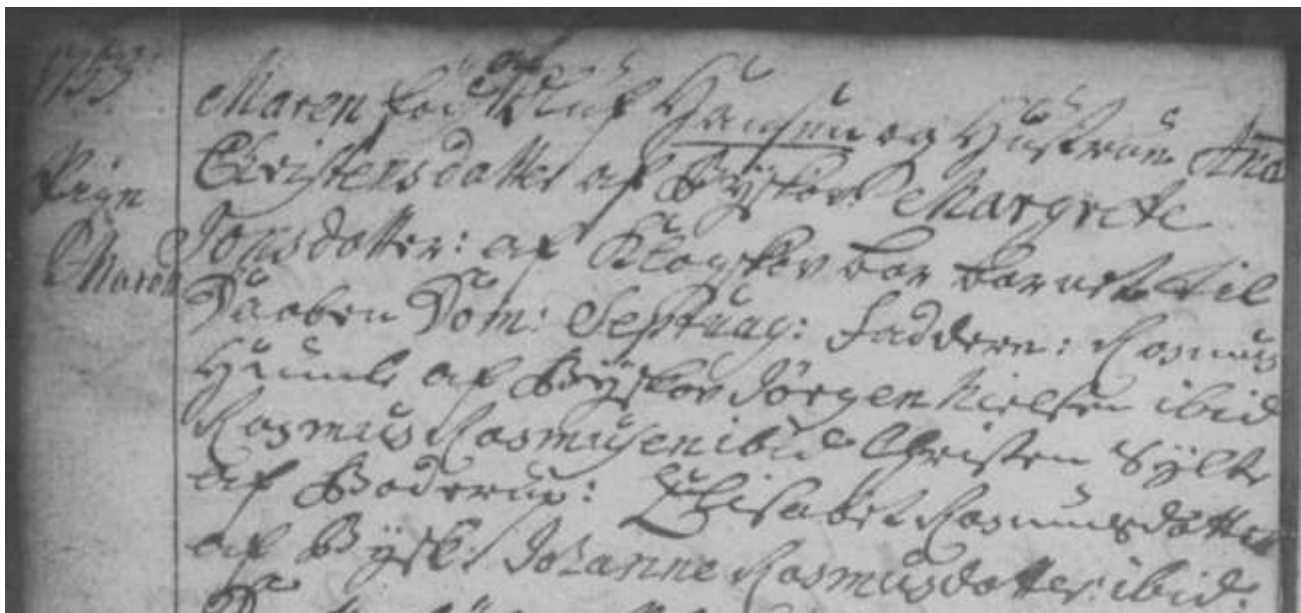 1753
Maren født af Oluf Hansen og Hustrue Ana
Pign
Christensdatter af Bÿskov Margrete
Maren
Jonsdotter: af Klogskov bar barnet til
Daaben Dom: Septuag: Faddere: Rasmus
Humle af Bÿskov Jörgen Nielsen ibid
Rasmus Rasmusen ibid Christen Sÿlte
af Boderup: Elisabet Rasmusdotter
af Bÿsk: Johanne Rasmusdotter: ibid: